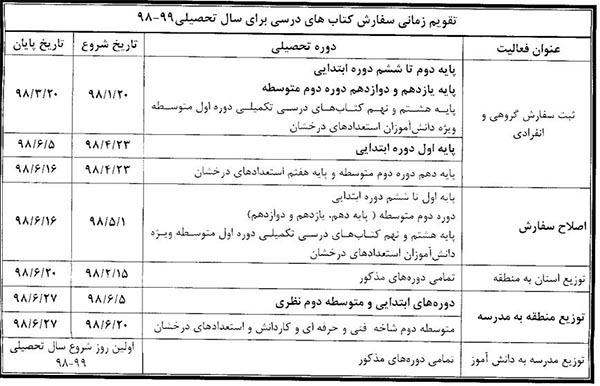 تقویم زمانی سفارش کتاب های درسی برای سال تحصیلی ۹۹-۹۸
عنوان فعالیت
دوره تحصیلی
تاریخ شروع
تاریخ پایان
ثبت سفارش گروهی و
انفرادی
پایه دوم تا ششم دوره ابتدایی
پایه یازدهم و دوازدهم دوره دوم متوسطه
پایه هشتم و نهم کتاب‌های درسی تکمیلی دوره اول متوسطه
ویژه دانش‌آموزان استعدادهای درخشان
۹۸/۱/۲۰
۹۸/۳/۲۰
پایه اول دوره ابتدایی
۹۸/۴/۲۳
۹۸/۶/۵
پایه دهم دوره دوم متوسطه و پایه هفتم استعدادهای درخشان
۹۸/۴/۲۳
۹۸/۶/۱۶
اصلاح سفارش
پایه اول تا ششم دوره ابتدایی
دوره دوم متوسطه ( پایه دهم، یازدهم و دوازدهم)
پایه هشتم و نهم کتاب‌های درسی تکمیلی دوره اول متوسطه ویژه
دانش‌آموزان استعدادهای درخشان
۹۸/۵/۱
۹۸/۶/۱۶
توزیع استان به منطقه
تمامی دوره‌های مذکور
۹۸/۲/۱۵
۹۸/۶/۲۰
توزیع منطقه به مدرسه
دوره‌های ابتدایی و متوسطه دوم نظری
۹۸/۶/۵
۹۸/۶/۲۷
متوسطه دوم شاخه فنی و حرفه ای و کاردانش و استعدادهای درخشان
۹۸/۶/۲۰
۹۸/۶/۲۷
توزیع مدرسه به دانش آموز
تمامی دوره‌های مذکور
اولین روز شروع سال تحصیلی
۹۸-۹۹